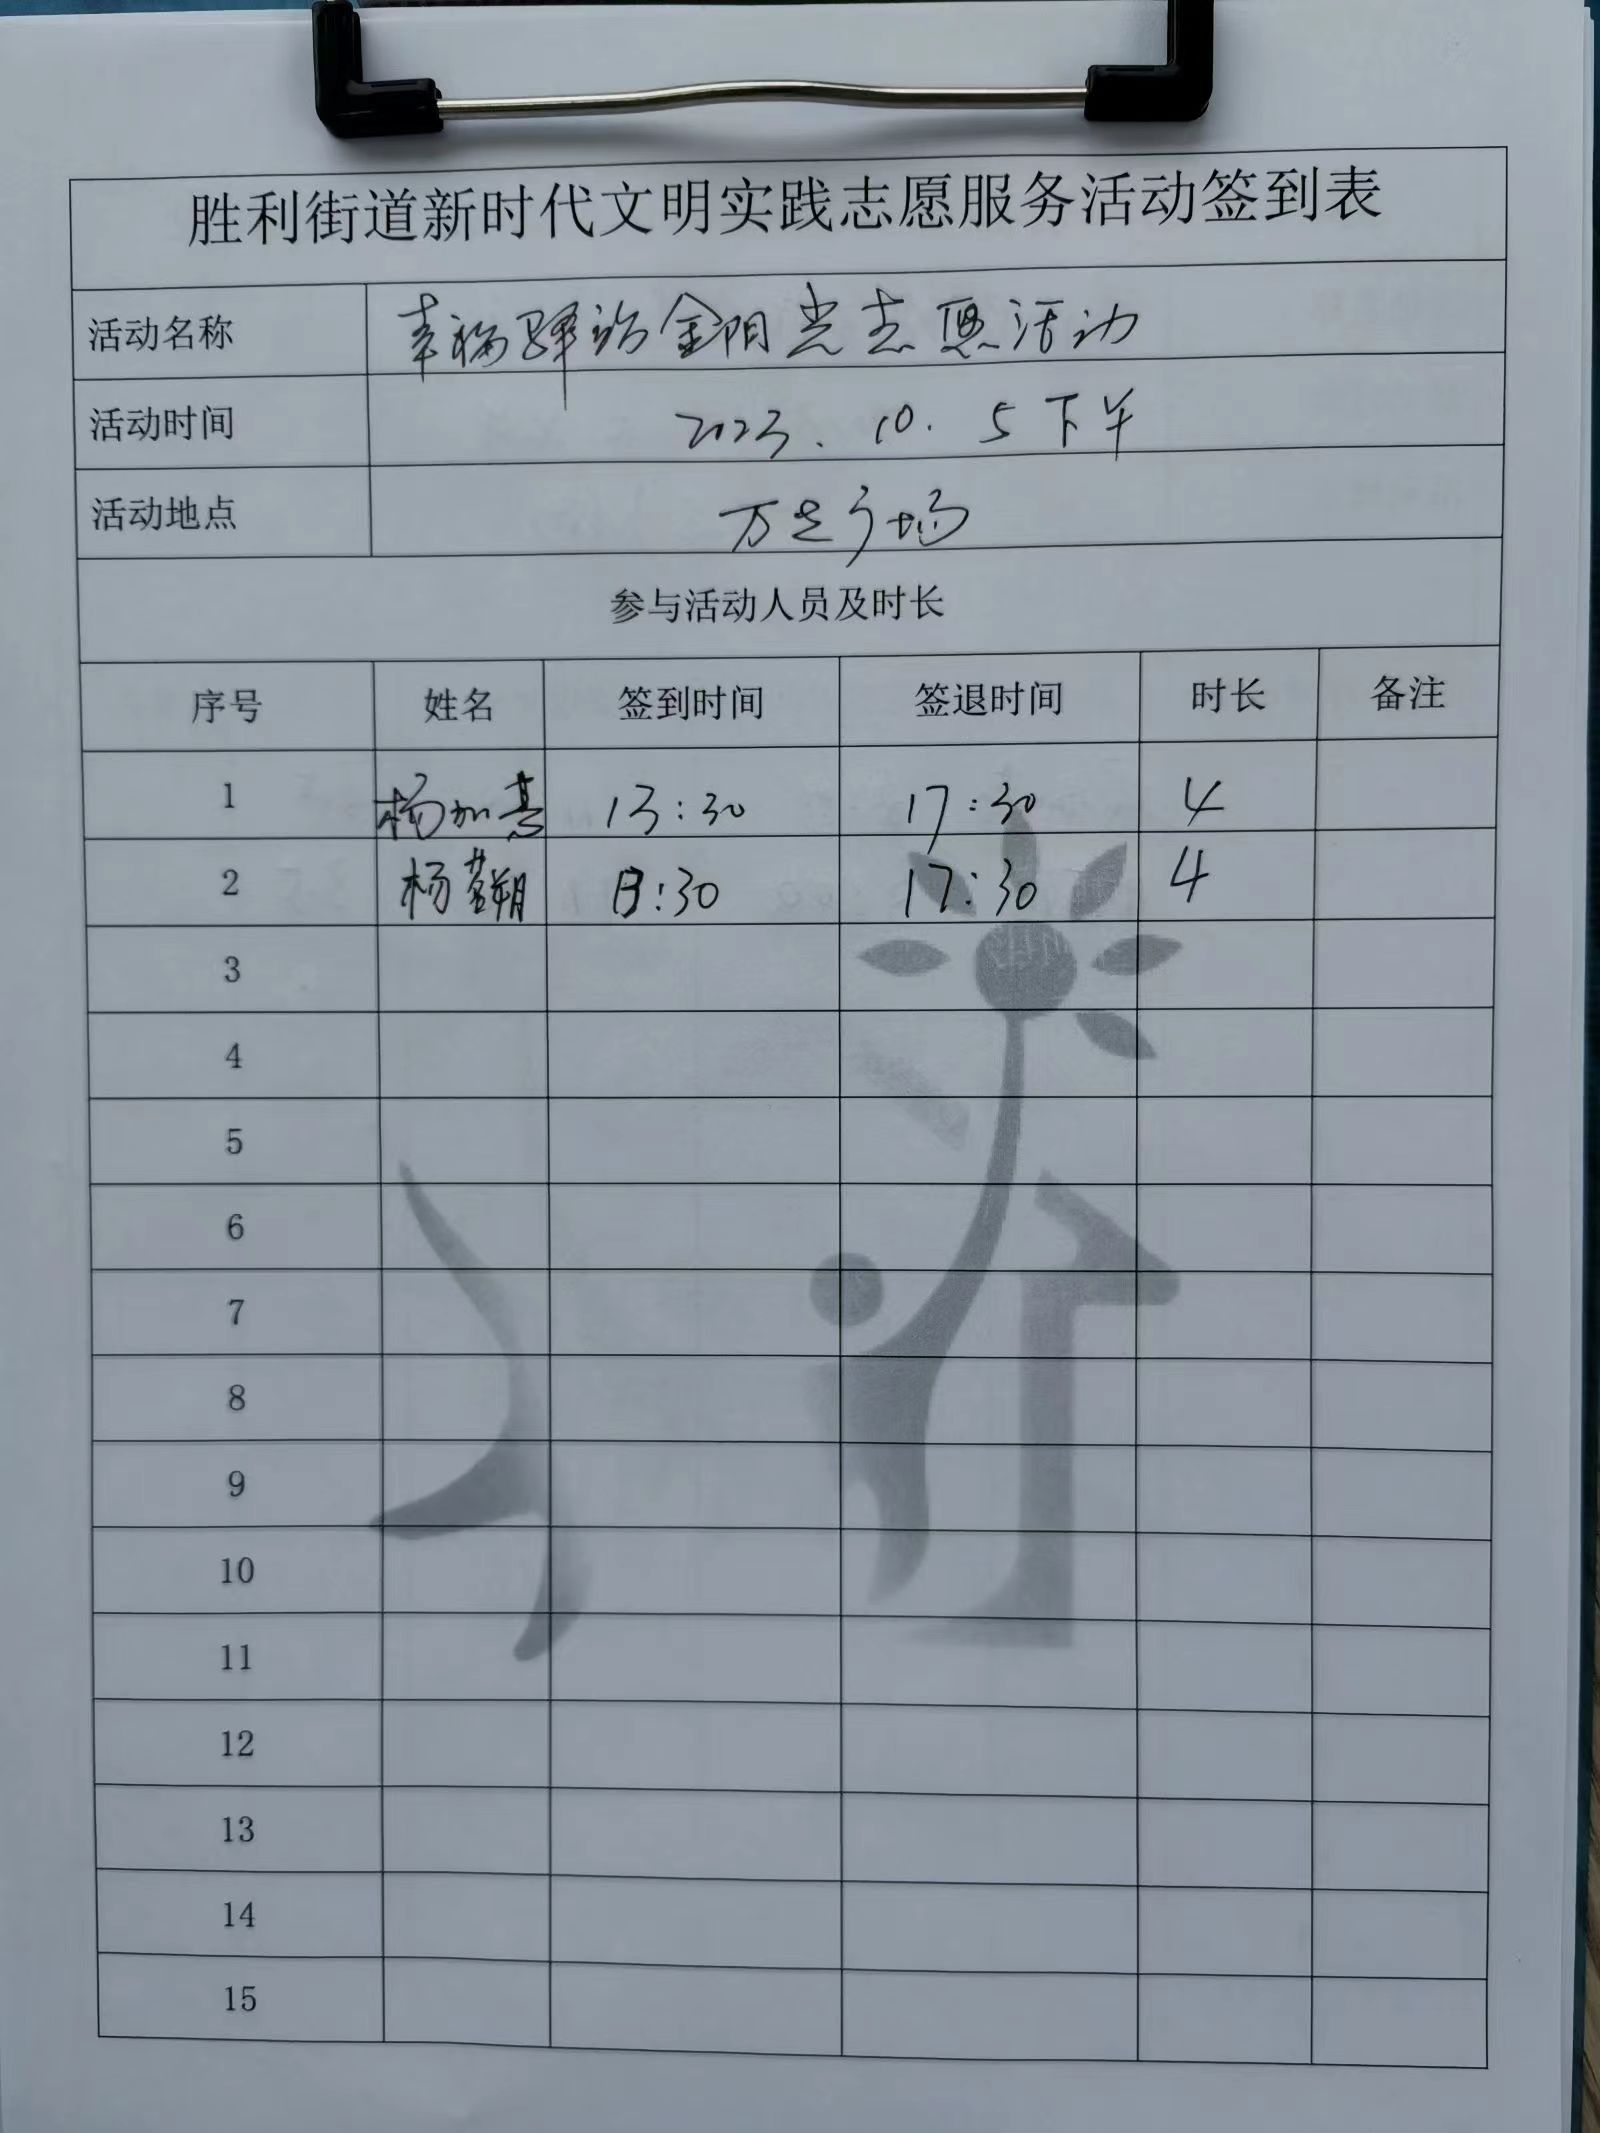 胜利街道新时代文明实践志愿服务活动签到表
活动名称 幸福驿站金阳光志愿活动
活动时间 2023.10.5下午
活动地点 万达广场
参与活动人员及时长
序号 姓名 签到时间 签退时间 时长 备注
1 杨加慧 13:30 17:30 4
2 杨朔 13:30 17:30 4
3
4
5
6
7
8
9
10
11
12
13
14
15